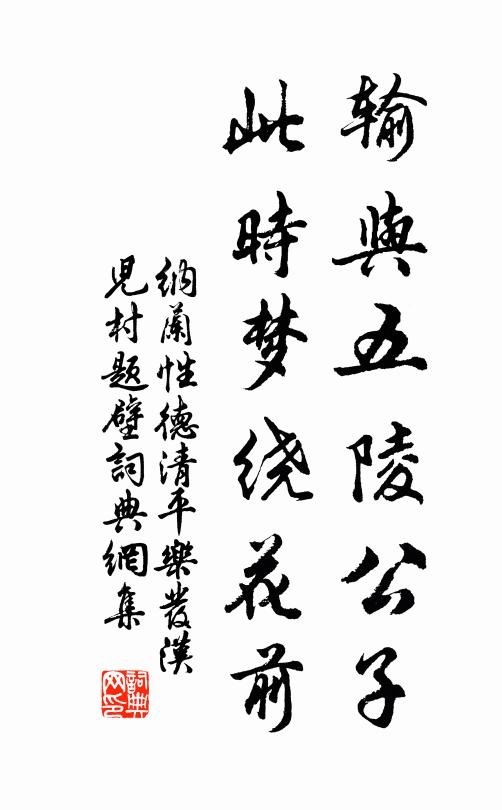 输與五陵公子
此時梦绕花前
納蘭性德清平樂發漢
児村題壁詞典網集
詞典
网印